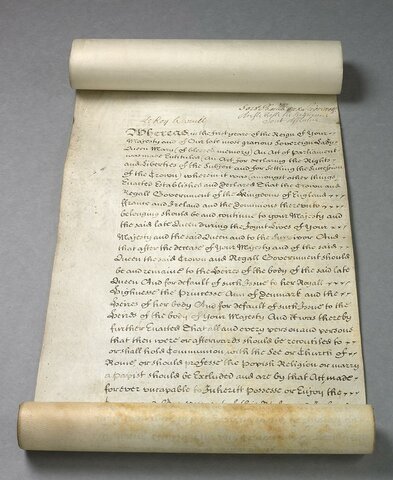 Le Roy le veult
Soit baillé aux
Whereas in the First yeare of the Reign of Your
Majesty and of Our late most gracious Sovereign Lady
Queen Mary (of blessed memory) An Act of Parliament
was made Entituled An Act for declaring the Rights
and Liberties of the Subject and for Setting the Succession
of the Crown wherein it was amongst other things
Enacted Established and Declared That the Crown and
Regall Government of the Kingdoms of England
ffrance and Ireland and the Dominions thereunto
belonging should be and continue to Your Majesty and
the said late Queen during the Joynt Lives of Your
Majesty and the said Queen and to the Survivor And
that after the decease of Your Majesty and of the said
Queen the said Crown and Regall Government should
be and remaine to the Heires of the body of the said late
Queen And for default of such Issue to her Royall
Highnesse the Princesse Ann of Denmark and the
Heires of her body And for default of such Issue to the
Heires of the body of Your Majesty And it was thereby
further Enacted That all and every person and persons
that then were or afterwards should be reconciled to
or shall hold Communion with the See or Church of
Rome or should professe the Popish Religion or marry
a papist should be Excluded and are by that Act made
forever uncapable to Inheritt Possesse or Enjoy the